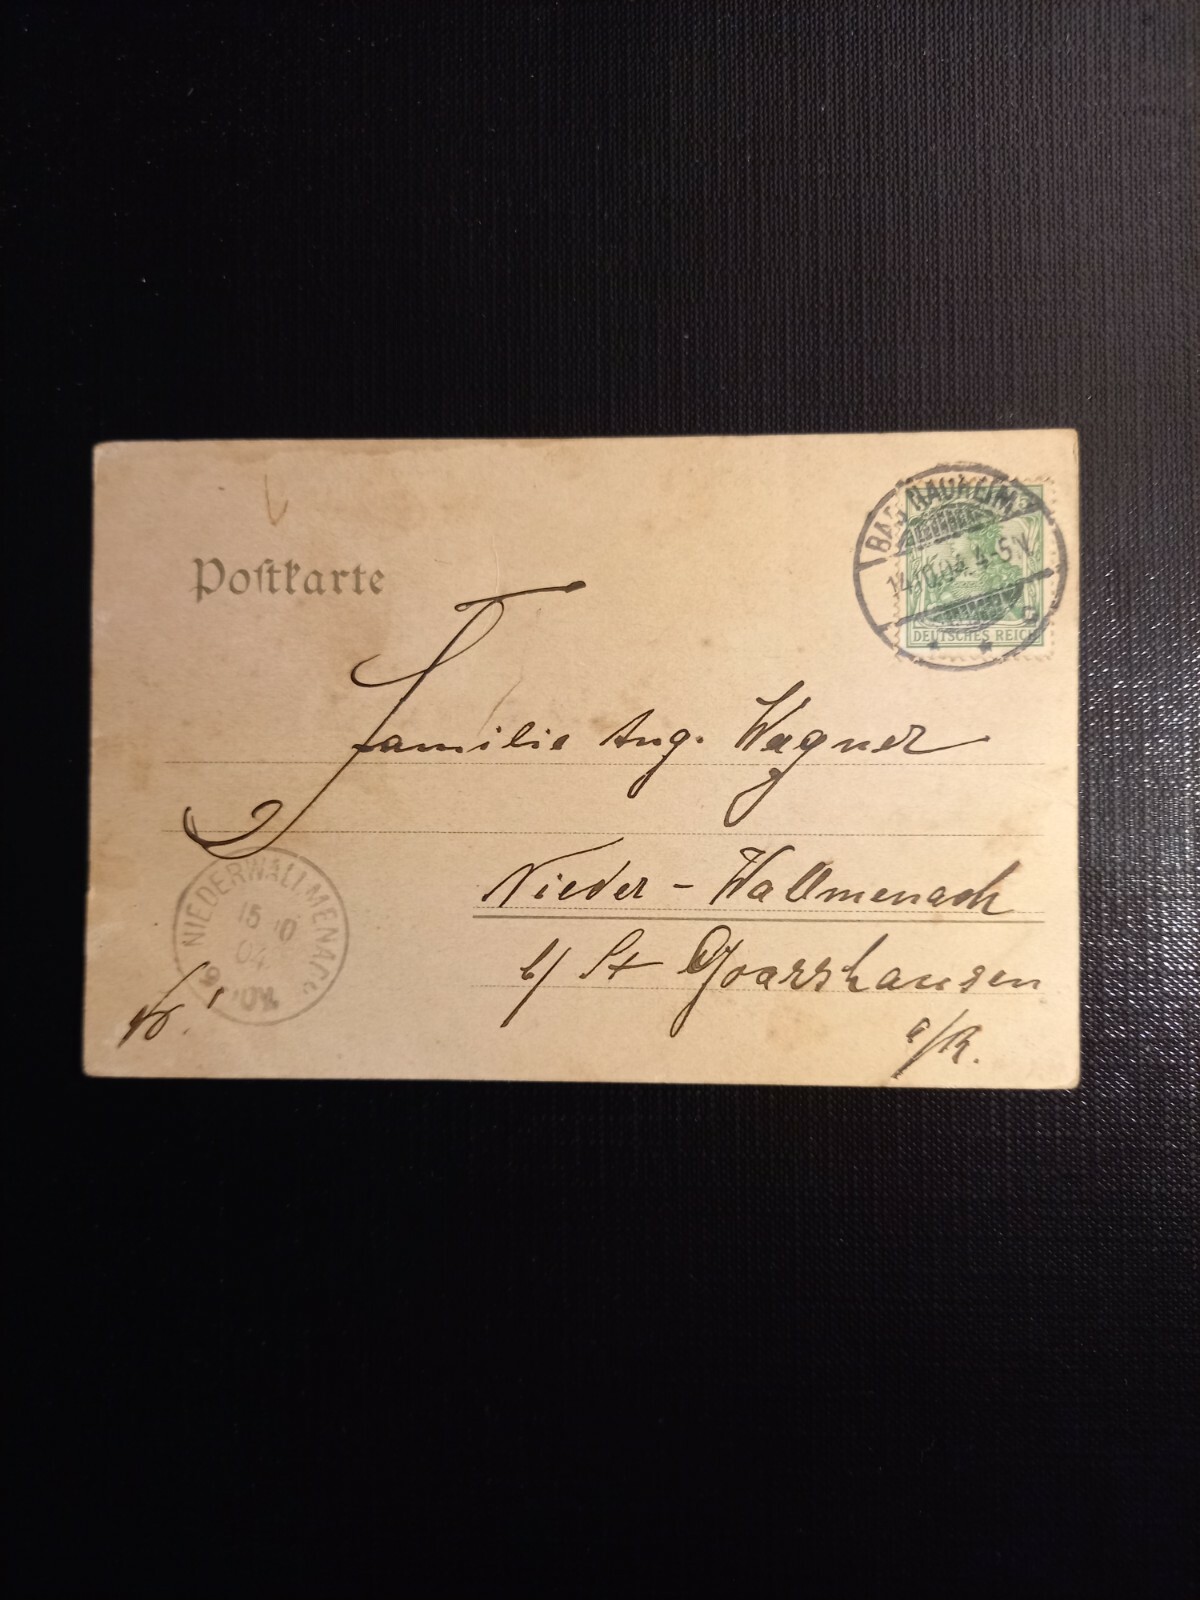 Postkarte
BAD NAUHEIM
14.10.04. 4-5N.
C
DEUTSCHES REICH
Familie Aug. Wagner
Nieder-Wallmenach
b/ St Goarshausen
a/R.
NIEDERWALLMENACH
15 10
04